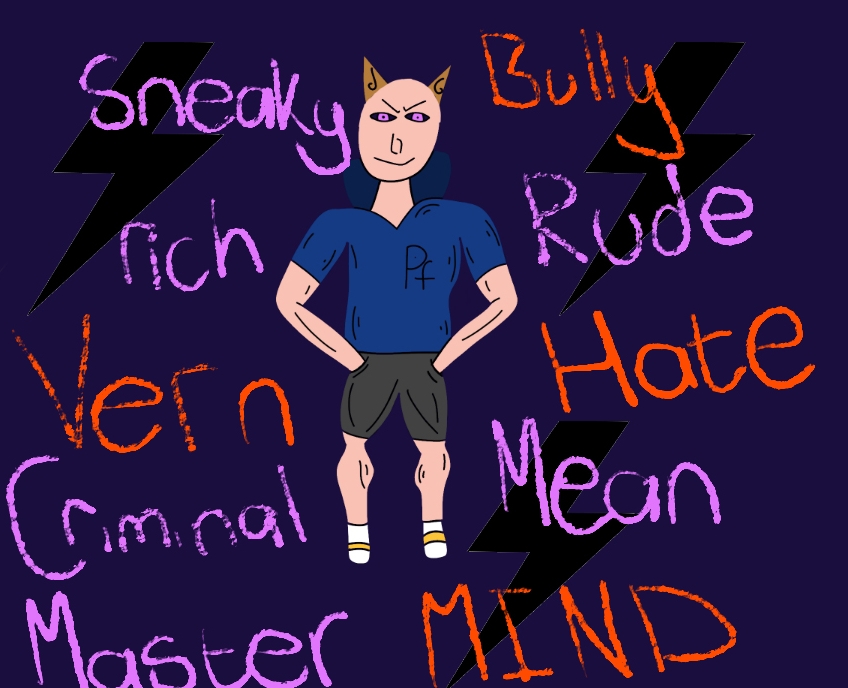 Sneaky Bully
rich Rude
Pf
Vern Hate
Criminal Mean
Master MIND